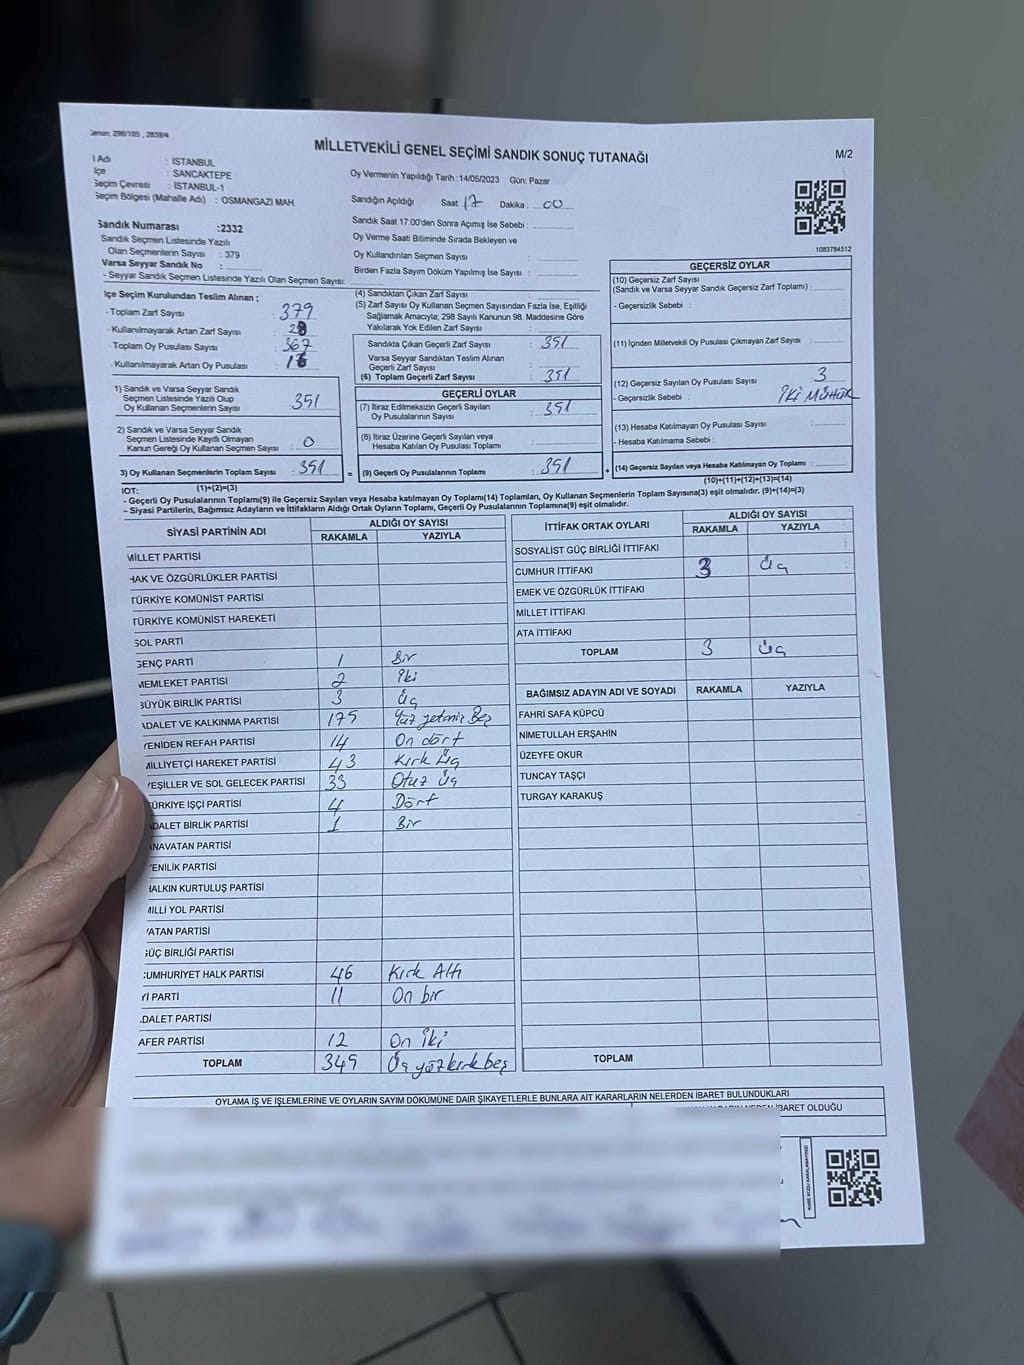 298/105 , 2839/4
MİLLETVEKİLİ GENEL SEÇİMİ SANDIK SONUÇ TUTANAĞI
M/2
l Adı : İSTANBUL
lçe : SANCAKTEPE
Seçim Çevresi : İSTANBUL-1
Seçim Bölgesi (Mahalle Adı) : OSMANGAZI MAH.
Oy Vermenin Yapıldığı Tarih :14/05/2023 Gün: Pazar
Sandığın Açıldığı Saat: 17 Dakika : 00
Sandık Saat 17:00'den Sonra Açımış İse Sebebi :
Oy Verme Saati Bitiminde Sırada Bekleyen ve
Oy Kullandırılan Seçmen Sayısı :
Birden Fazla Sayım Döküm Yapılmış İse Sayısı :
1083784512
Sandık Numarası :2332
Sandık Seçmen Listesinde Yazılı
Olan Seçmenlerin Sayısı : 379
Varsa Seyyar Sandık No :
- Seyyar Sandık Seçmen Listesinde Yazılı Olan Seçmen Sayısı:
İlçe Seçim Kurulundan Teslim Alınan ;
- Toplam Zarf Sayısı : 379
- Kullanılmayarak Artan Zarf Sayısı :
- Toplam Oy Pusulası Sayısı : 367
- Kullanılmayarak Artan Oy Pusulası :
1) Sandık ve Varsa Seyyar Sandık
Seçmen Listesinde Yazılı Olup
Oy Kullanan Seçmenlerin Sayısı : 351
2) Sandık ve Varsa Seyyar Sandık
Seçmen Listesinde Kayıtlı Olmayan
Kanun Gereği Oy Kullanan Seçmen Sayısı : 0
3) Oy Kullanan Seçmenlerin Toplam Sayısı : 351
(1)+(2)=(3)
(4) Sandıktan Çıkan Zarf Sayısı :
(5) Zarf Sayısı Oy Kullanan Seçmen Sayısından Fazla İse, Eşitliği
Sağlamak Amacıyla; 298 Sayılı Kanunun 98. Maddesine Göre
Yakılarak Yok Edilen Zarf Sayısı :
Sandıkta Çıkan Geçerli Zarf Sayısı : 351
Varsa Seyyar Sandıktan Teslim Alınan
Geçerli Zarf Sayısı :
(6) Toplam Geçerli Zarf Sayısı : 351
GEÇERLİ OYLAR
(7) İtiraz Edilmeksizin Geçerli Sayılan
Oy Pusulalarının Sayısı : 351
(8) İtiraz Üzerine Geçerli Sayılan veya
Hesaba Katılan Oy Pusulası Toplamı :
= (9) Geçerli Oy Pusulalarının Toplamı : 351 +
GEÇERSİZ OYLAR
(10) Geçersiz Zarf Sayısı
(Sandık ve Varsa Seyyar Sandık Geçersiz Zarf Toplamı) :
- Geçersizlik Sebebi :
(11) İçinden Milletvekili Oy Pusulası Çıkmayan Zarf Sayısı :
(12) Geçersiz Sayılan Oy Pusulası Sayısı : 3
- Geçersizlik Sebebi : İKİ MÜHÜR
(13) Hesaba Katılmayan Oy Pusulası Sayısı :
- Hesaba Katılmama Sebebi :
(14) Geçersiz Sayılan veya Hesaba Katılmayan Oy Toplamı :
(10)+(11)+(12)+(13)=(14)
NOT:
- Geçerli Oy Pusulalarının Toplamı(9) ile Geçersiz Sayılan veya Hesaba katılmayan Oy Toplamı(14) Toplamları, Oy Kullanan Seçmenlerin Toplam Sayısına(3) eşit olmalıdır. (9)+(14)=(3)
- Siyasi Partilerin, Bağımsız Adayların ve İttifakların Aldığı Ortak Oyların Toplamı, Geçerli Oy Pusulalarının Toplamına(9) eşit olmalıdır.
SİYASİ PARTİNİN ADI ALDIĞI OY SAYISI
RAKAMLA YAZIYLA
MİLLET PARTİSİ
HAK VE ÖZGÜRLÜKLER PARTİSİ
TÜRKİYE KOMÜNİST PARTİSİ
TÜRKİYE KOMÜNİST HAREKETİ
SOL PARTİ
GENÇ PARTİ 1 Bir
MEMLEKET PARTİSİ 2 İki
BÜYÜK BİRLİK PARTİSİ 3 Üç
ADALET VE KALKINMA PARTİSİ 175 Yüz yetmiş Beş
YENİDEN REFAH PARTİSİ 14 On dört
MİLLİYETÇİ HAREKET PARTİSİ 43 Kırk Üç
YEŞİLLER VE SOL GELECEK PARTİSİ 33 Otuz Üç
TÜRKİYE İŞÇİ PARTİSİ 4 Dört
ADALET BİRLİK PARTİSİ 1 Bir
ANAVATAN PARTİSİ
YENİLİK PARTİSİ
HALKIN KURTULUŞ PARTİSİ
MİLLİ YOL PARTİSİ
VATAN PARTİSİ
GÜÇ BİRLİĞİ PARTİSİ
CUMHURİYET HALK PARTİSİ 46 Kırk Altı
İYİ PARTİ 11 On bir
ADALET PARTİSİ
ZAFER PARTİSİ 12 On iki
TOPLAM 345 Üç yüz kırk beş
İTTİFAK ORTAK OYLARI ALDIĞI OY SAYISI
RAKAMLA YAZIYLA
SOSYALİST GÜÇ BİRLİĞİ İTTİFAKI
CUMHUR İTTİFAKI 3 Üç
EMEK VE ÖZGÜRLÜK İTTİFAKI
MİLLET İTTİFAKI
ATA İTTİFAKI
TOPLAM 3 Üç
BAĞIMSIZ ADAYIN ADI VE SOYADI RAKAMLA YAZIYLA
FAHRİ SAFA KÜPCÜ
NİMETULLAH ERŞAHİN
ÜZEYFE OKUR
TUNCAY TAŞÇI
TURGAY KARAKUŞ
TOPLAM
OYLAMA İŞ VE İŞLEMLERİNE VE OYLARIN SAYIM DÖKÜMÜNE DAİR ŞİKAYETLERLE BUNLARA AİT KARARLARIN NELERDEN İBARET BULUNDUKLARI
İBARET OLDUĞU